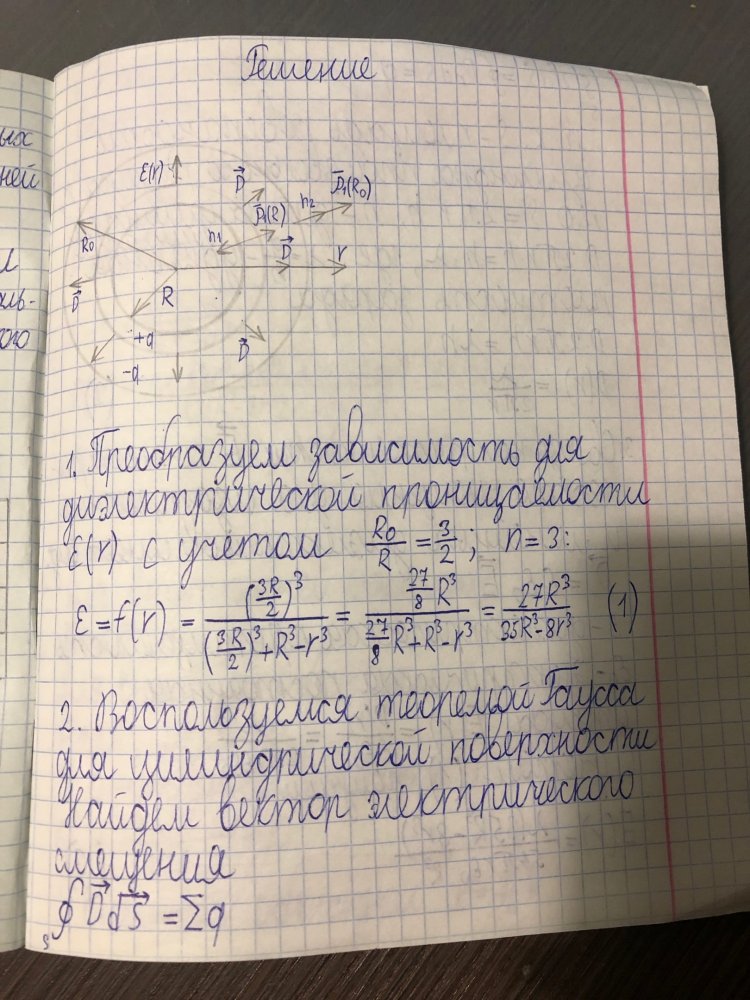 Решение
ых
ней
ль-
ого
ε(r)
D⃗
P⃗₁(R₀)
n₂
P⃗₁(R)
n₁
R₀
D⃗
r
D⃗
R
+q
-q
D⃗
1. Преобразуем зависимость для
диэлектрической проницаемости
ε(r) с учетом R₀/R = 3/2; n=3:
ε = f(r) = (3R/2)³ / ((3R/2)³ + R³ - r³) = (27/8 R³) / (27/8 R³ + R³ - r³) = 27R³ / (35R³ - 8r³) (1)
2. Воспользуемся теоремой Гаусса
для цилиндрической поверхности
Найдем вектор электрического
смещения
∮ₛ D⃗ dS⃗ = Σq